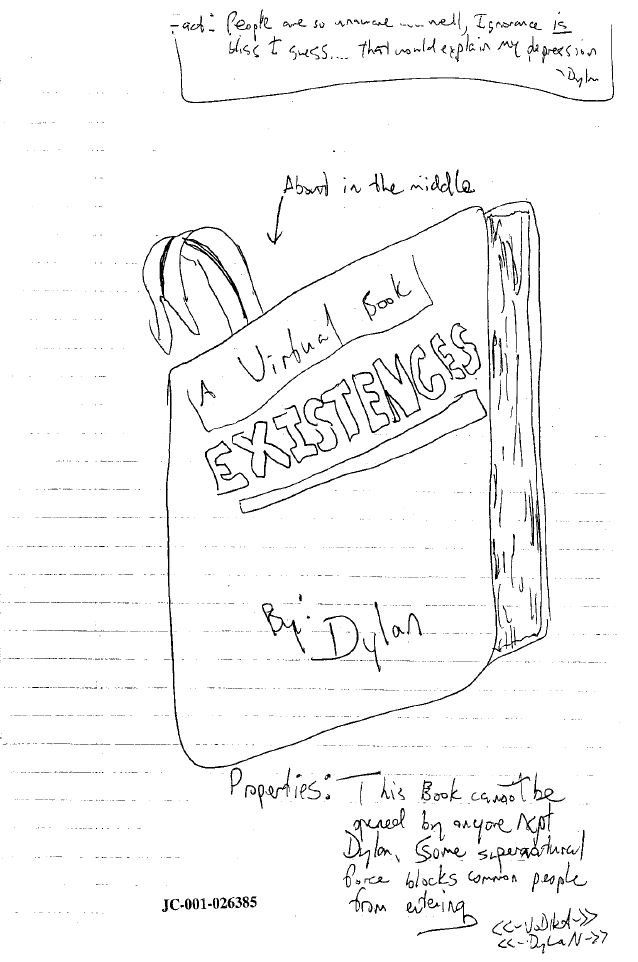 Fact: People are so unaware .... well, Ignorance is
bliss I guess.... that would explain my depression
~Dylan
About in the middle
A Virtual Book
EXISTENCES
By: Dylan
Properties: This Book cannot be
opened by anyone xept
Dylan, Some supernatural
force blocks common people
from entering
JC-001-026385
<<-VoDkA->>
<<-DyLaN->>